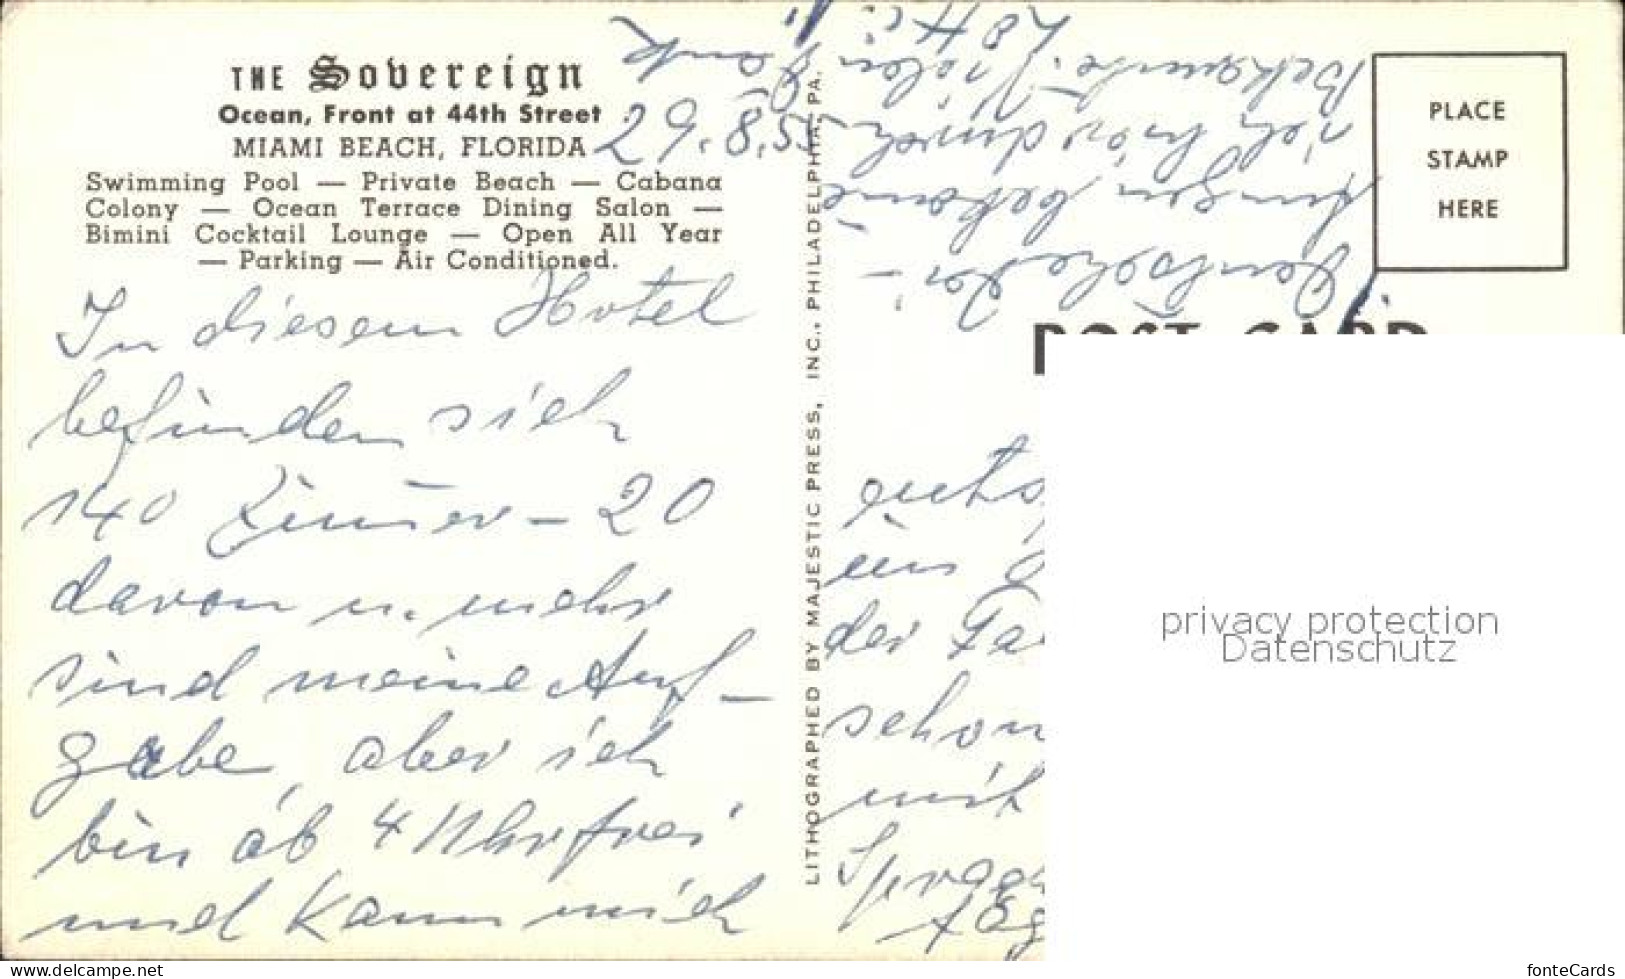 THE Sovereign
Ocean, Front at 44th Street
MIAMI BEACH, FLORIDA
Swimming Pool — Private Beach — Cabana
Colony — Ocean Terrace Dining Salon —
Bimini Cocktail Lounge — Open All Year
— Parking — Air Conditioned.
In diesem Hotel
befinden sich
140 Zimmer - 20
davon u. mehr
sind meine Auf-
gabe, aber ich
bin ab 4 Uhr frei
und kann mich
LITHOGRAPHED BY MAJESTIC PRESS, INC., PHILADELPHIA, PA.
PLACE
STAMP
HERE
POST CARD
ents
ein
der Fa
schon
mit
Sprach
Deutsche Zei-
tungen bekomme
ich hier durch
Bekannte. Vielen Dank
Lotti
26.8.55
privacy protection
Datenschutz
www.delcampe.net
fonteCards